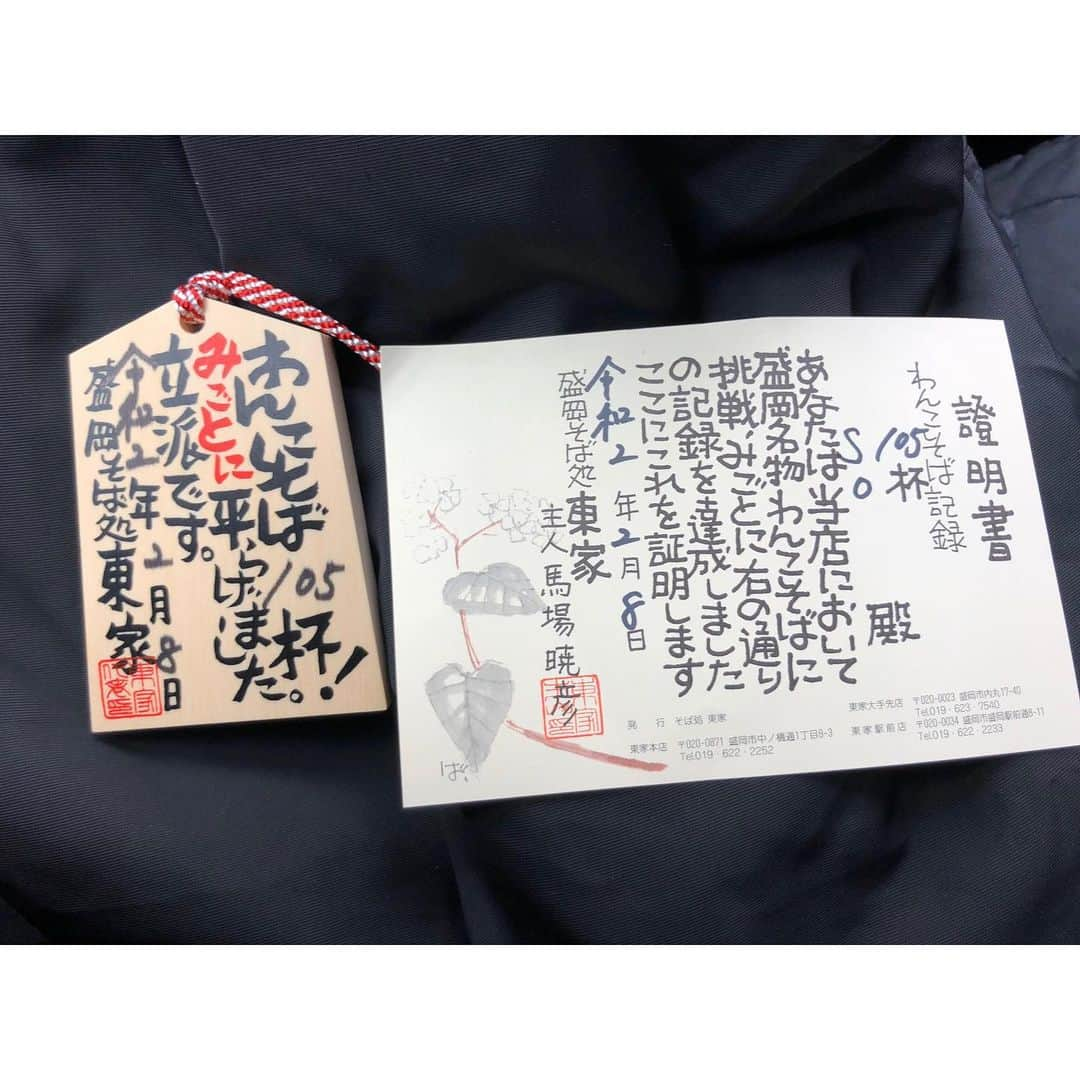 わんこそば105杯!
みごとに平らげました。
立派です。
令和2年2月8日
盛岡そば処東家
證明書
わんこそば記録
105杯
SO 殿
あなたは当店において
盛岡名物わんこそばに
挑戦、みごとに右の通り
の記録を達成しました
ここにこれを証明します
令和2年2月8日
盛岡そば処東家
主人 馬場暁彦
ばば
発 行 そば処 東家
東家本店 〒020-0871 盛岡市中ノ橋通1丁目8-3
Tel.019・622・2252
東家大手先店 〒020-0023 盛岡市内丸17-40
Tel.019・623・7540
東家駅前店 〒020-0034 盛岡市盛岡駅前通8-11
Tel.019・622・2233